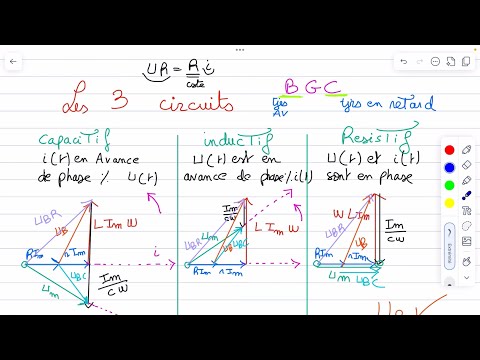 UR = R i
cste
Les 3 circuits
B G C
tjrs
Av
tjrs en retard
Capacitif
i(t) en Avance
de phase % U(t)
UBR
UB
L Im W
RIm
rIm
i
UBC
Um
Im
CW
inductif
U(t) est en
avance de phase % i(t)
Im
CW
UBR
Um
UB
UBC
L Im W
RIm
rIm
Resistif
U(t) et i(t)
sont en phase
W L Im
UBR
UB
Im
CW
RIm
rIm
Um
UBC
Extensions